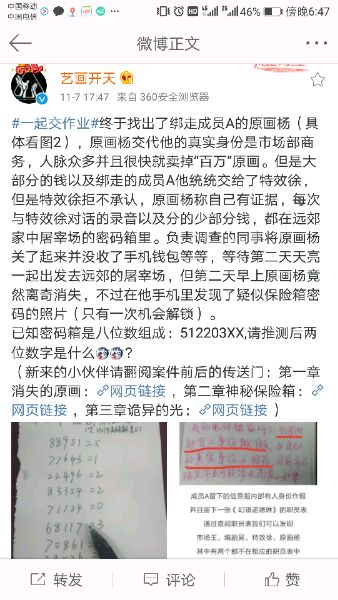 中国移动
中国电信
HD 46% 傍晚6:47
微博正文
艺画开天
11-7 17:47 来自 360安全浏览器
#一起交作业#终于找出了绑走成员A的原画杨（具
体看图2），原画杨交代他的真实身份是市场部商
务，人脉众多并且很快就卖掉“百万”原画。但是大
部分的钱以及绑走的成员A他统统交给了特效徐，
但是特效徐拒不承认，原画杨称自己有证据，每次
与特效徐对话的录音以及分的少部分钱，都在远郊
家中居宰场的密码箱里。负责调查的同事将原画杨
关了起来并没收了手机钱包等等，等待第二天天亮
一起出发去远郊的屠宰场，但第二天早上原画杨竟
然离奇消失，不过在他手机里发现了疑似保险箱密
码的照片（只有一次机会解锁）。
已知密码箱是八位数组成：512203XX,请推测后两
位数字是什么
（新来的小伙伴请翻阅案件前后的传送门：第一章
消失的原画：网页链接，第二章神秘保险箱：
网页链接，第三章诡异的光：网页链接）
88951=5
77643=1
22446=2
83354=2
71124=0
68117=3
70861
成员A留下的信息据内部有人身份作假
并且留下一张《幻镜诺德琳》的职员表
通过查阅职员表我们可以发现
市场王、编剧吴、特效徐、原画杨
其中有两个都不在相应的职员表中
转发 评论 赞